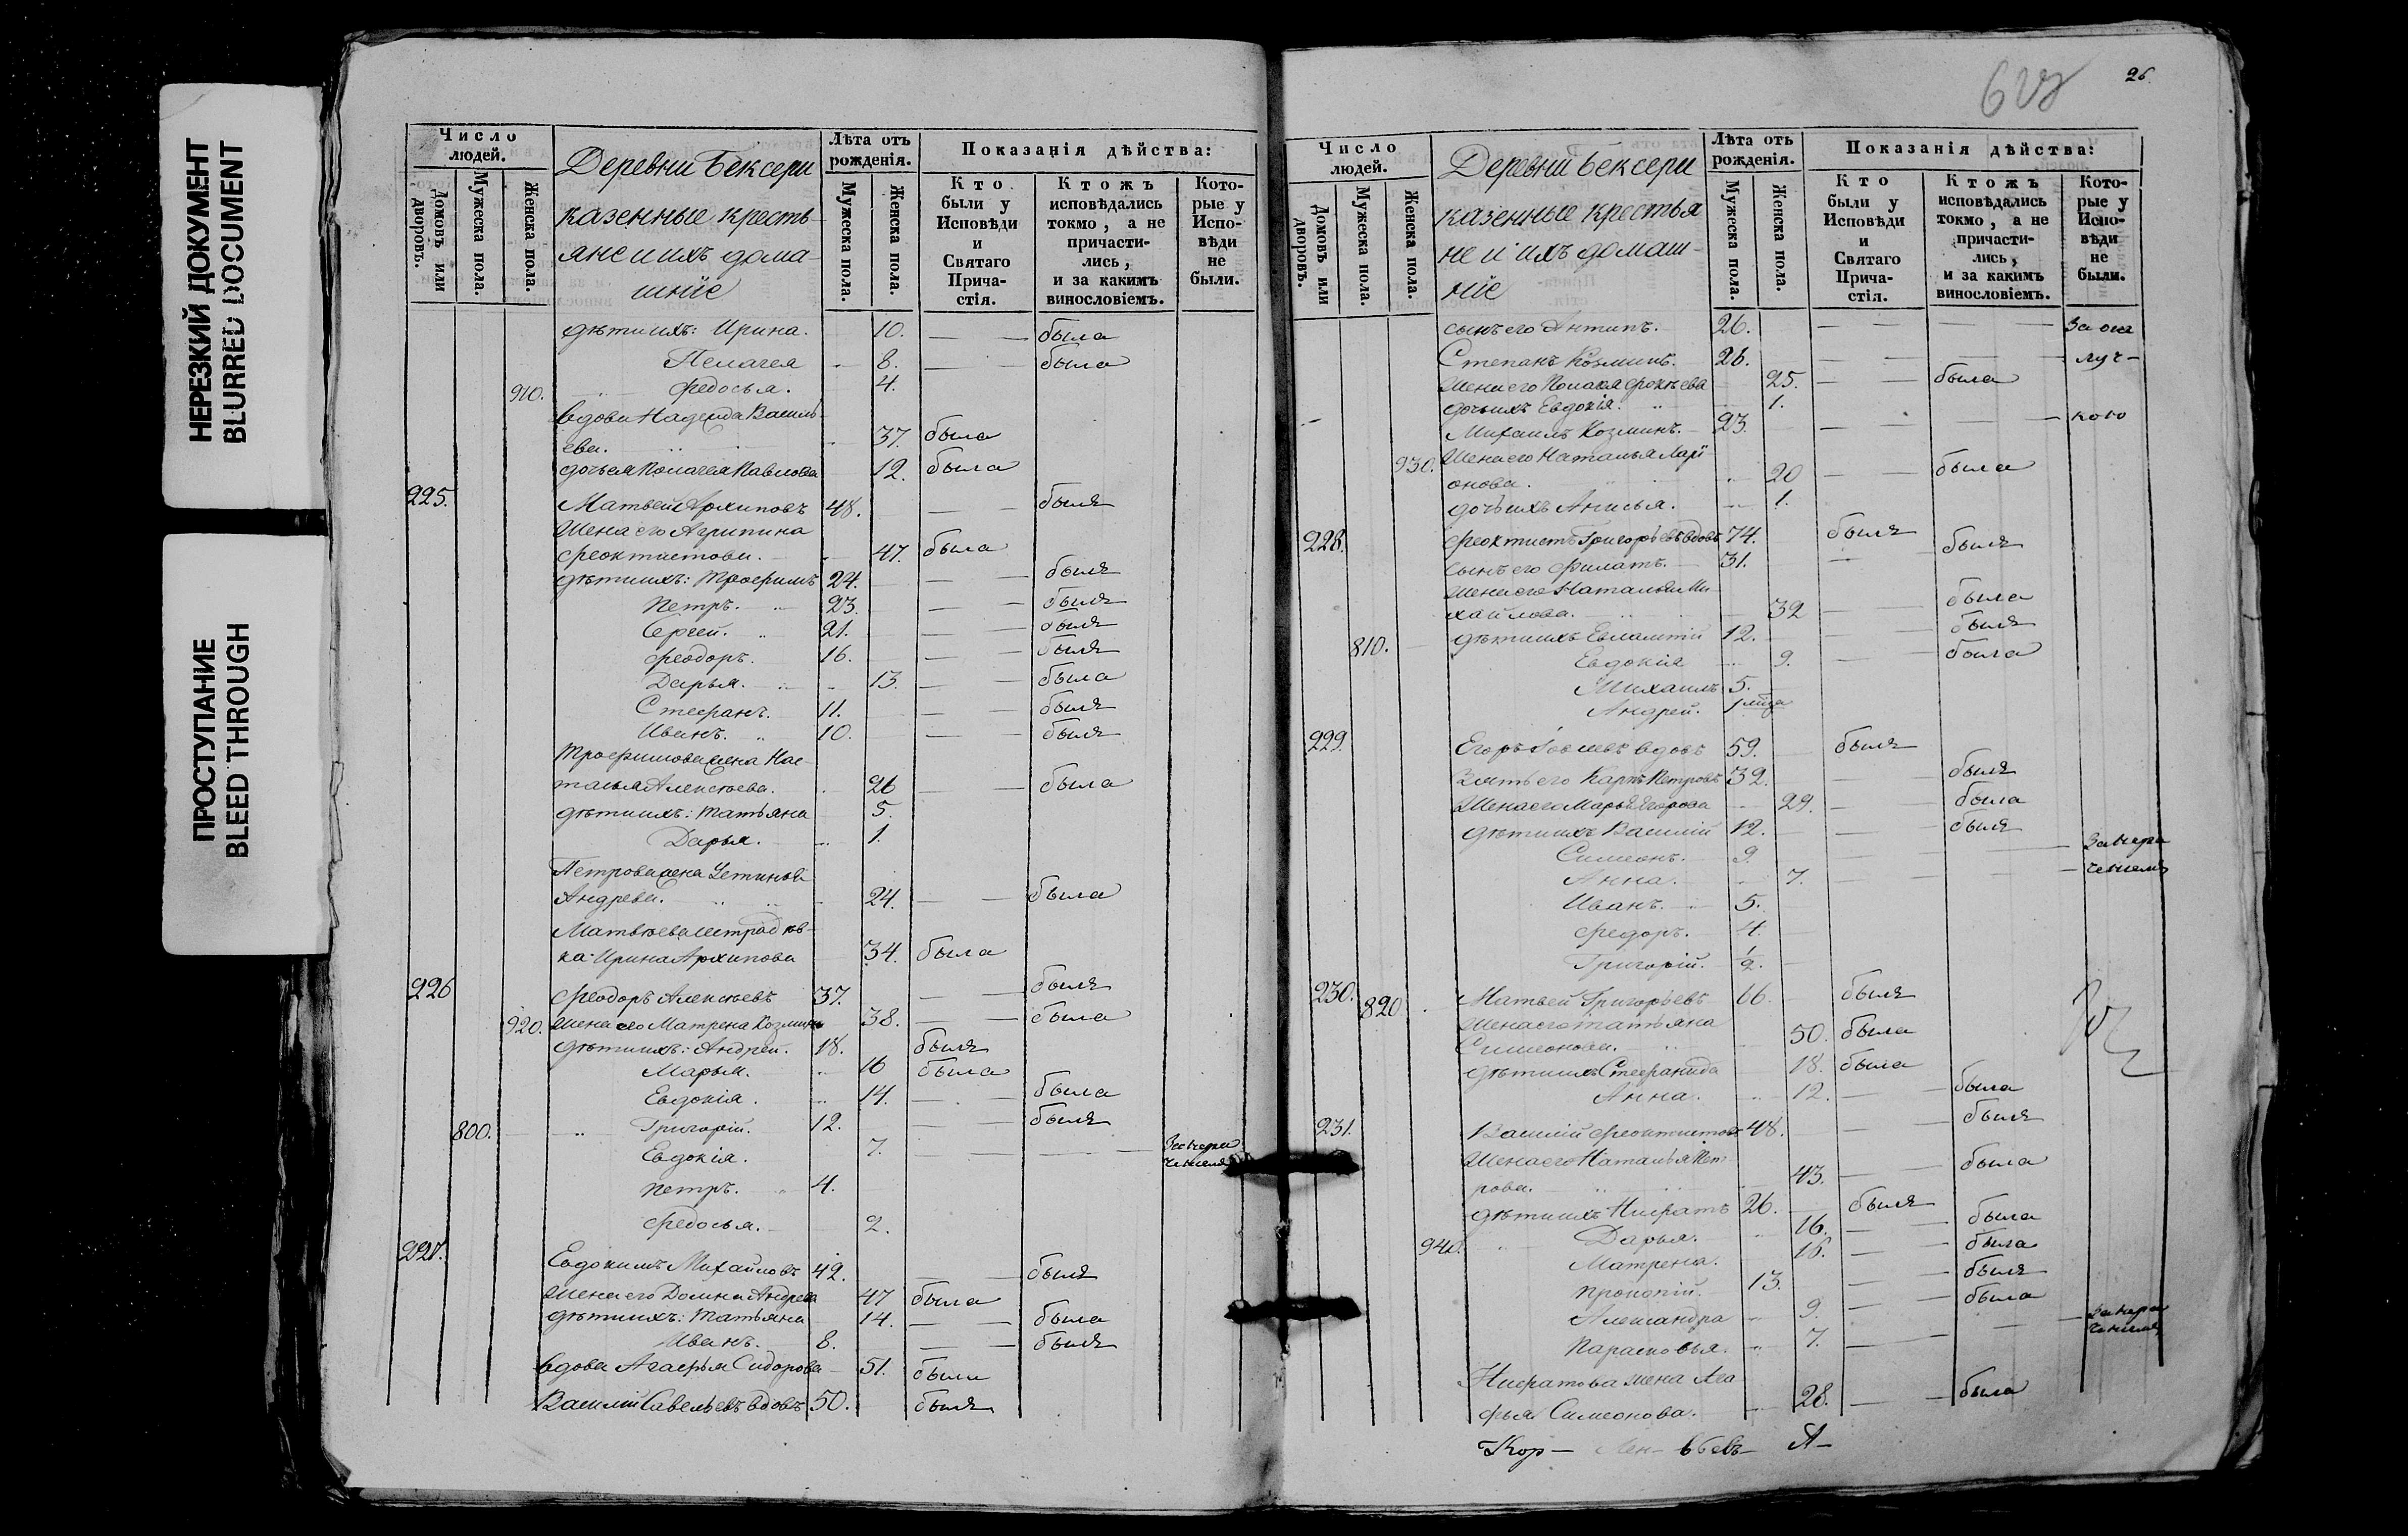 НЕРЕЗКИЙ ДОКУМЕНТ
BLURRED DOCUMENT
ПРОСТУПАНИЕ
BLEED THROUGH
Число людей.
Домовъ или дворовъ.
Мужеска пола.
Женска пола.
Деревни Бексери
казенные кресть-
яне и ихъ дома-
шніе
Лѣта отъ рожденія.
Мужеска пола.
Женска пола.
Показанія дѣйства:
Кто были у Исповѣди и Святаго Прича-стія.
Ктожъ исповѣдались токмо, а не причасти-лись, и за какимъ винословіемъ.
Кото-рые у Испо-вѣди не были.
дѣти ихъ: Ирина. 10. была
Пелагея 8. была
910. Федосья. 4.
вдова Надежда Василь-
ева. 37. была
дочь ея Пелагея Павлова 12. была
225. Матвей Архиповъ 48. былъ
Жена его Агрипина
Феоктистова. 47. была
дѣти ихъ: Трофимъ 24. былъ
Петръ. 23. былъ
Сергей. 21. былъ
Феодоръ. 16. былъ
Дарья. 13. была
Стефанъ. 11. былъ
Иванъ. 10. былъ
Трофимова жена Нас-
тасья Алексѣева. 26 была
дѣти ихъ: Татьяна 5.
Дарья. 1.
Петрова жена Устинья
Андреева. 24. была
Матвѣева сестра дѣв-
ка Ирина Архипова 34. была
226 Феодоръ Алексѣевъ 37. былъ
920. Жена его Матрена Козмина 38. была
дѣти ихъ: Андрей. 18. былъ
Марья. 16 была
Евдокія. 14. была
800. Григорій. 12. былъ
Евдокія. 7.
Петръ. 4.
Федосья. 2.
227. Евдокимъ Михайловъ 42. былъ
Жена его Домна Андреева 47 была
дѣти ихъ: Татьяна 14. была
Иванъ. 8. былъ
вдова Агафья Сидорова 51. была
Василій Савельевъ вдовъ 50. былъ
26
Число людей.
Домовъ или дворовъ.
Мужеска пола.
Женска пола.
Деревни Бексери
казенные крестья
не и ихъ домаш-
ніе
Лѣта отъ рожденія.
Мужеска пола.
Женска пола.
Показанія дѣйства:
Кто были у Исповѣди и Святаго Прича-стія.
Ктожъ исповѣдались токмо, а не причасти-лись, и за какимъ винословіемъ.
Кото-рые у Испо-вѣди не были.
сынъ его Антипъ. 26. За отл
Степанъ Козминъ. 28. луч-
Жена его Пелагея Фокѣева 25. была
дочь ихъ Евдокія. 1.
Михаилъ Козминъ. 23. кою
930. Жена его Наталья Лари
онова. 20 была
дочь ихъ Анисья. 1.
228. Феоктистъ Григорьевъ вдовъ 74. былъ
сынъ его Филатъ. 31. былъ
Жена его Наталья Ми
хайлова. 32 была
810. дѣти ихъ Евлампій 12. былъ
Евдокія 9. была
Михаилъ 5.
Андрей. 1
229. Егоръ вдовъ 59. былъ
Зять его Карпъ Петровъ 32. былъ
Жена его Марья Егорова 29. была
дѣти ихъ Василій 12. былъ
Симеонъ. 9.
Анна. 7.
Иванъ. 5.
Федоръ. 4.
Григорій. 1/2.
230. 820 Матвей Григорьевъ 16. былъ
Жена его Татьяна
Симеонова. 50. была
дѣти ихъ Стефанида 18. была
Анна. 12. была
231. Василій Феоктистовъ 48. былъ
Жена его Наталья Пет
рова. 43. была
дѣти ихъ Нифатъ 26. былъ
940. Дарья. 16. была
Матрена. 16. была
Прокопій. 13. былъ
Александра 9. была
Парасковья. 7.
Нифатова жена Ага
фья Симеонова. 28. была